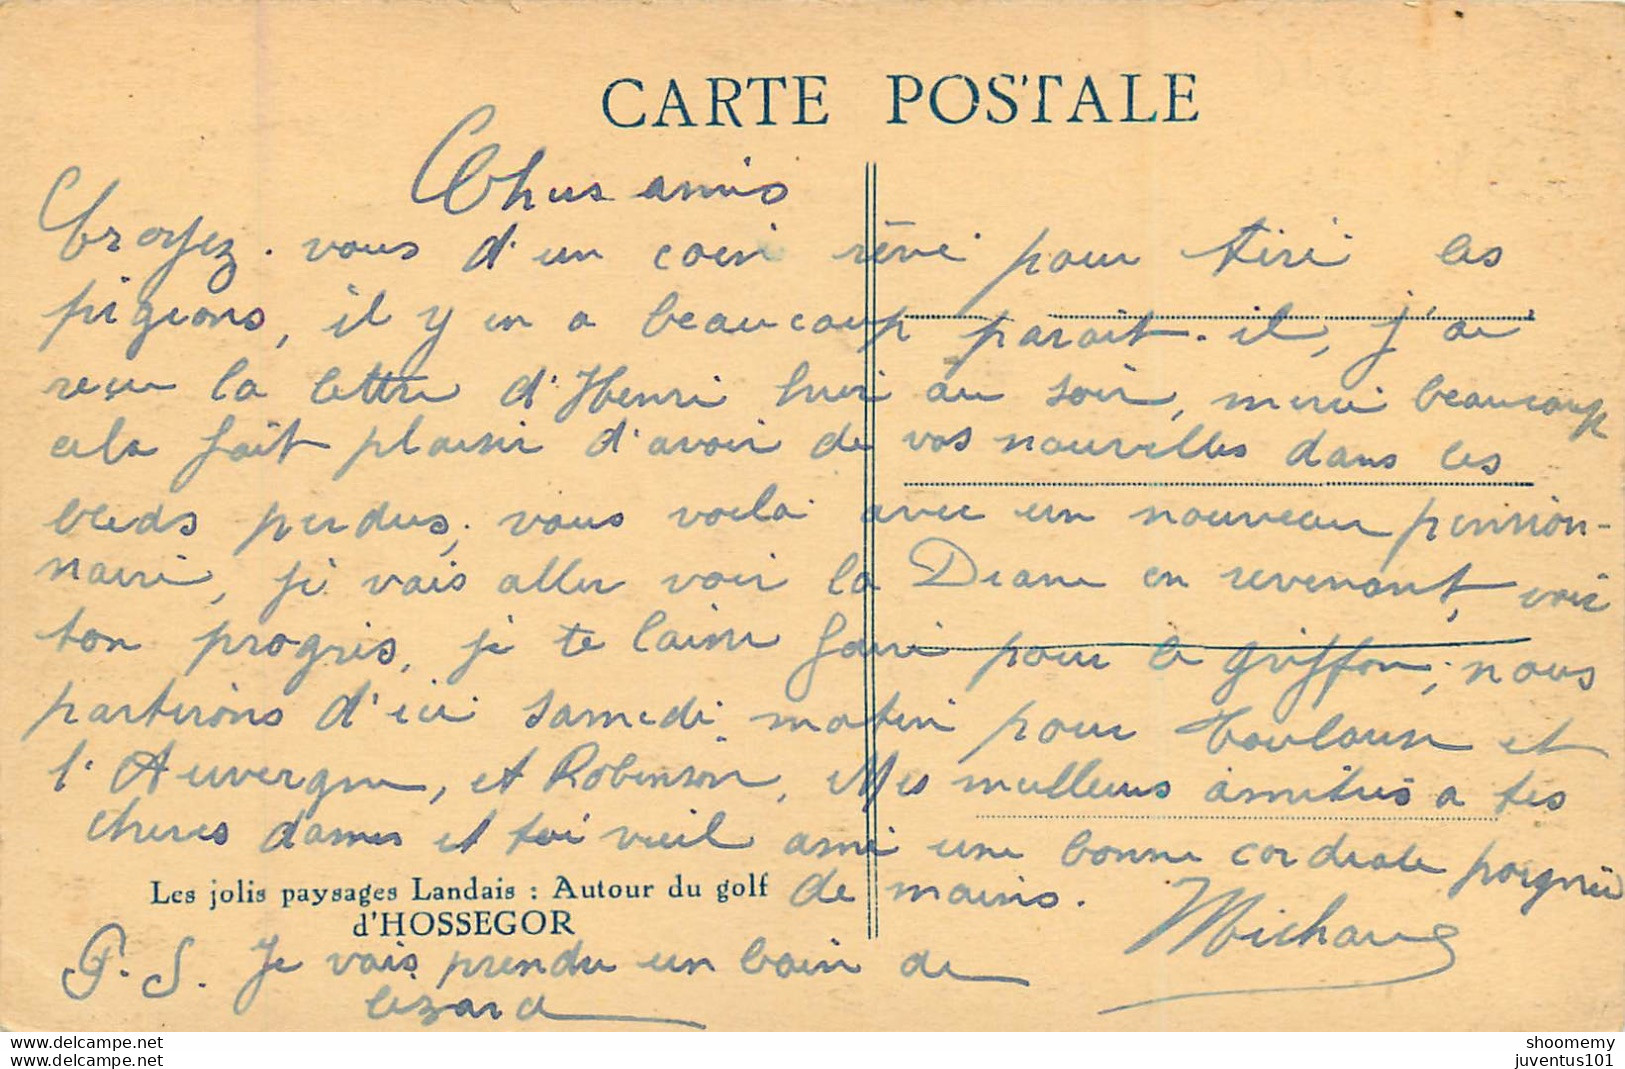 CARTE POSTALE
Chers amis
Croyez-vous d'un coin rêvé pour tirer les
pigeons, il y en a beaucoup parait-il, j'ai
reçu la lettre d'Henri hier au soir, merci beaucoup
cela fait plaisir d'avoir de vos nouvelles dans ces
bleds perdus, vous voila avec un nouveau pension-
naire, je vais aller voir la Diane en revenant, voir
ton progrès, je te laisse faire pour le griffon; nous
partirons d'ici samedi matin pour Toulouse et
l'Auvergne, et Robinson, Mes meilleures amitiés a tes
cheres dames et toi vieil ami une bonne cordiale poignée
de mains.
Les jolis paysages Landais : Autour du golf
d'HOSSEGOR
Michaud
P.S. Je vais prendre un bain de
lézard
delcampe.net
delcampe.net
shoomemy
juventus101